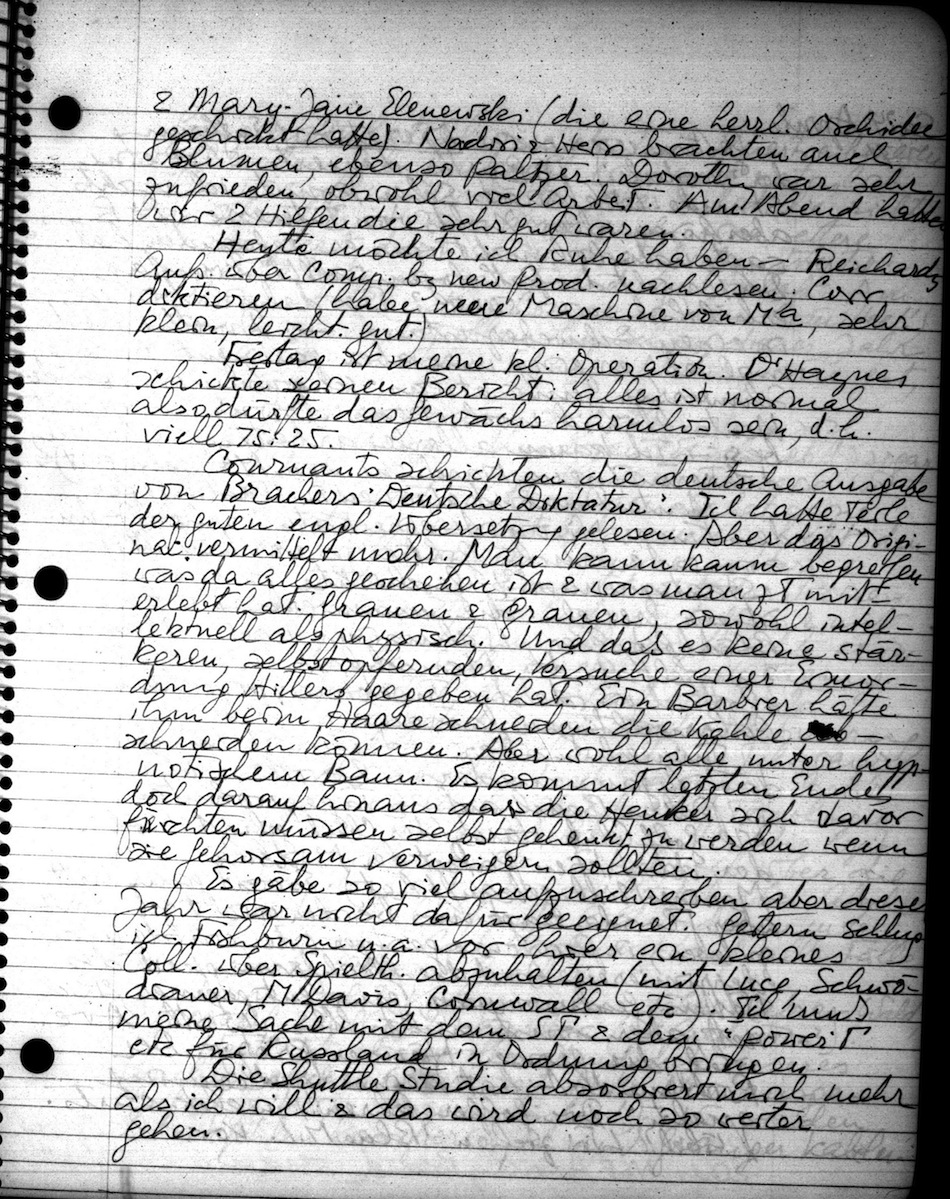 & Mary-Jane Elenewski (die eine herrl. Orchidee
geschickt hatte). Nadiri & Herr brachten auch
Blumen, ebenso Paltzer. Dorothy war sehr
zufrieden, obwohl viel Arbeit. Am Abend hatten
wir 2 Hilfen die sehr gut waren.
Heute möchte ich Ruhe haben – Reichardts
Aufs. über Comp. by new prod. nachlesen; Corr.
diktieren (habe neue Maschine von Ma, sehr
klein, leicht. gut.)
Freitag ist meine kl. Operation. Dr Haynes
schickte seinen Bericht: alles ist normal
also dürfte das Gewächs harmlos sein, d.h.
viell 75:25.
Cournants schickten die deutsche Ausgabe
von Brachers "Deutsche Diktatur". Ich hatte Teile
der guten engl. Übersetzg gelesen. Aber das Origi-
nal vermittelt mehr. Man kann kaum begreifen
was da alles geschehen ist & was man zT mit-
erlebt hat. Grauen & Grauen, sowohl intel-
lektuell als physisch. Und dass es keine stär-
keren, selbstopfernden, Versuche einer Ermor-
dung Hitlers gegeben hat. Ein Barbier hätte
ihm beim Haareschneiden die Kehle
schneiden können. Aber wohl alle unter hyp-
notischem Bann. Es kommt letzten Endes
doch darauf hinaus dass die Henker sich davor
fürchten müssen selbst gehenkt zu werden wenn
sie Gehorsam verweigern sollten.
Es gäbe so viel aufzuschreiben aber dieses
Jahr war nicht dafür geeignet. Gestern schlug
ich Fishburn u.a. vor hier ein kleines
Coll. über Spielth. abzuhalten (mit Luce, Schwö-
diauer, M Davis, Cornwall etc). Ich muss
meine Sache mit dem ST & dem "power"
etc für Russland in Ordnung bringen.
Die Shuttle Studie absorbiert mich mehr
als ich will & das wird noch so weiter
gehen.